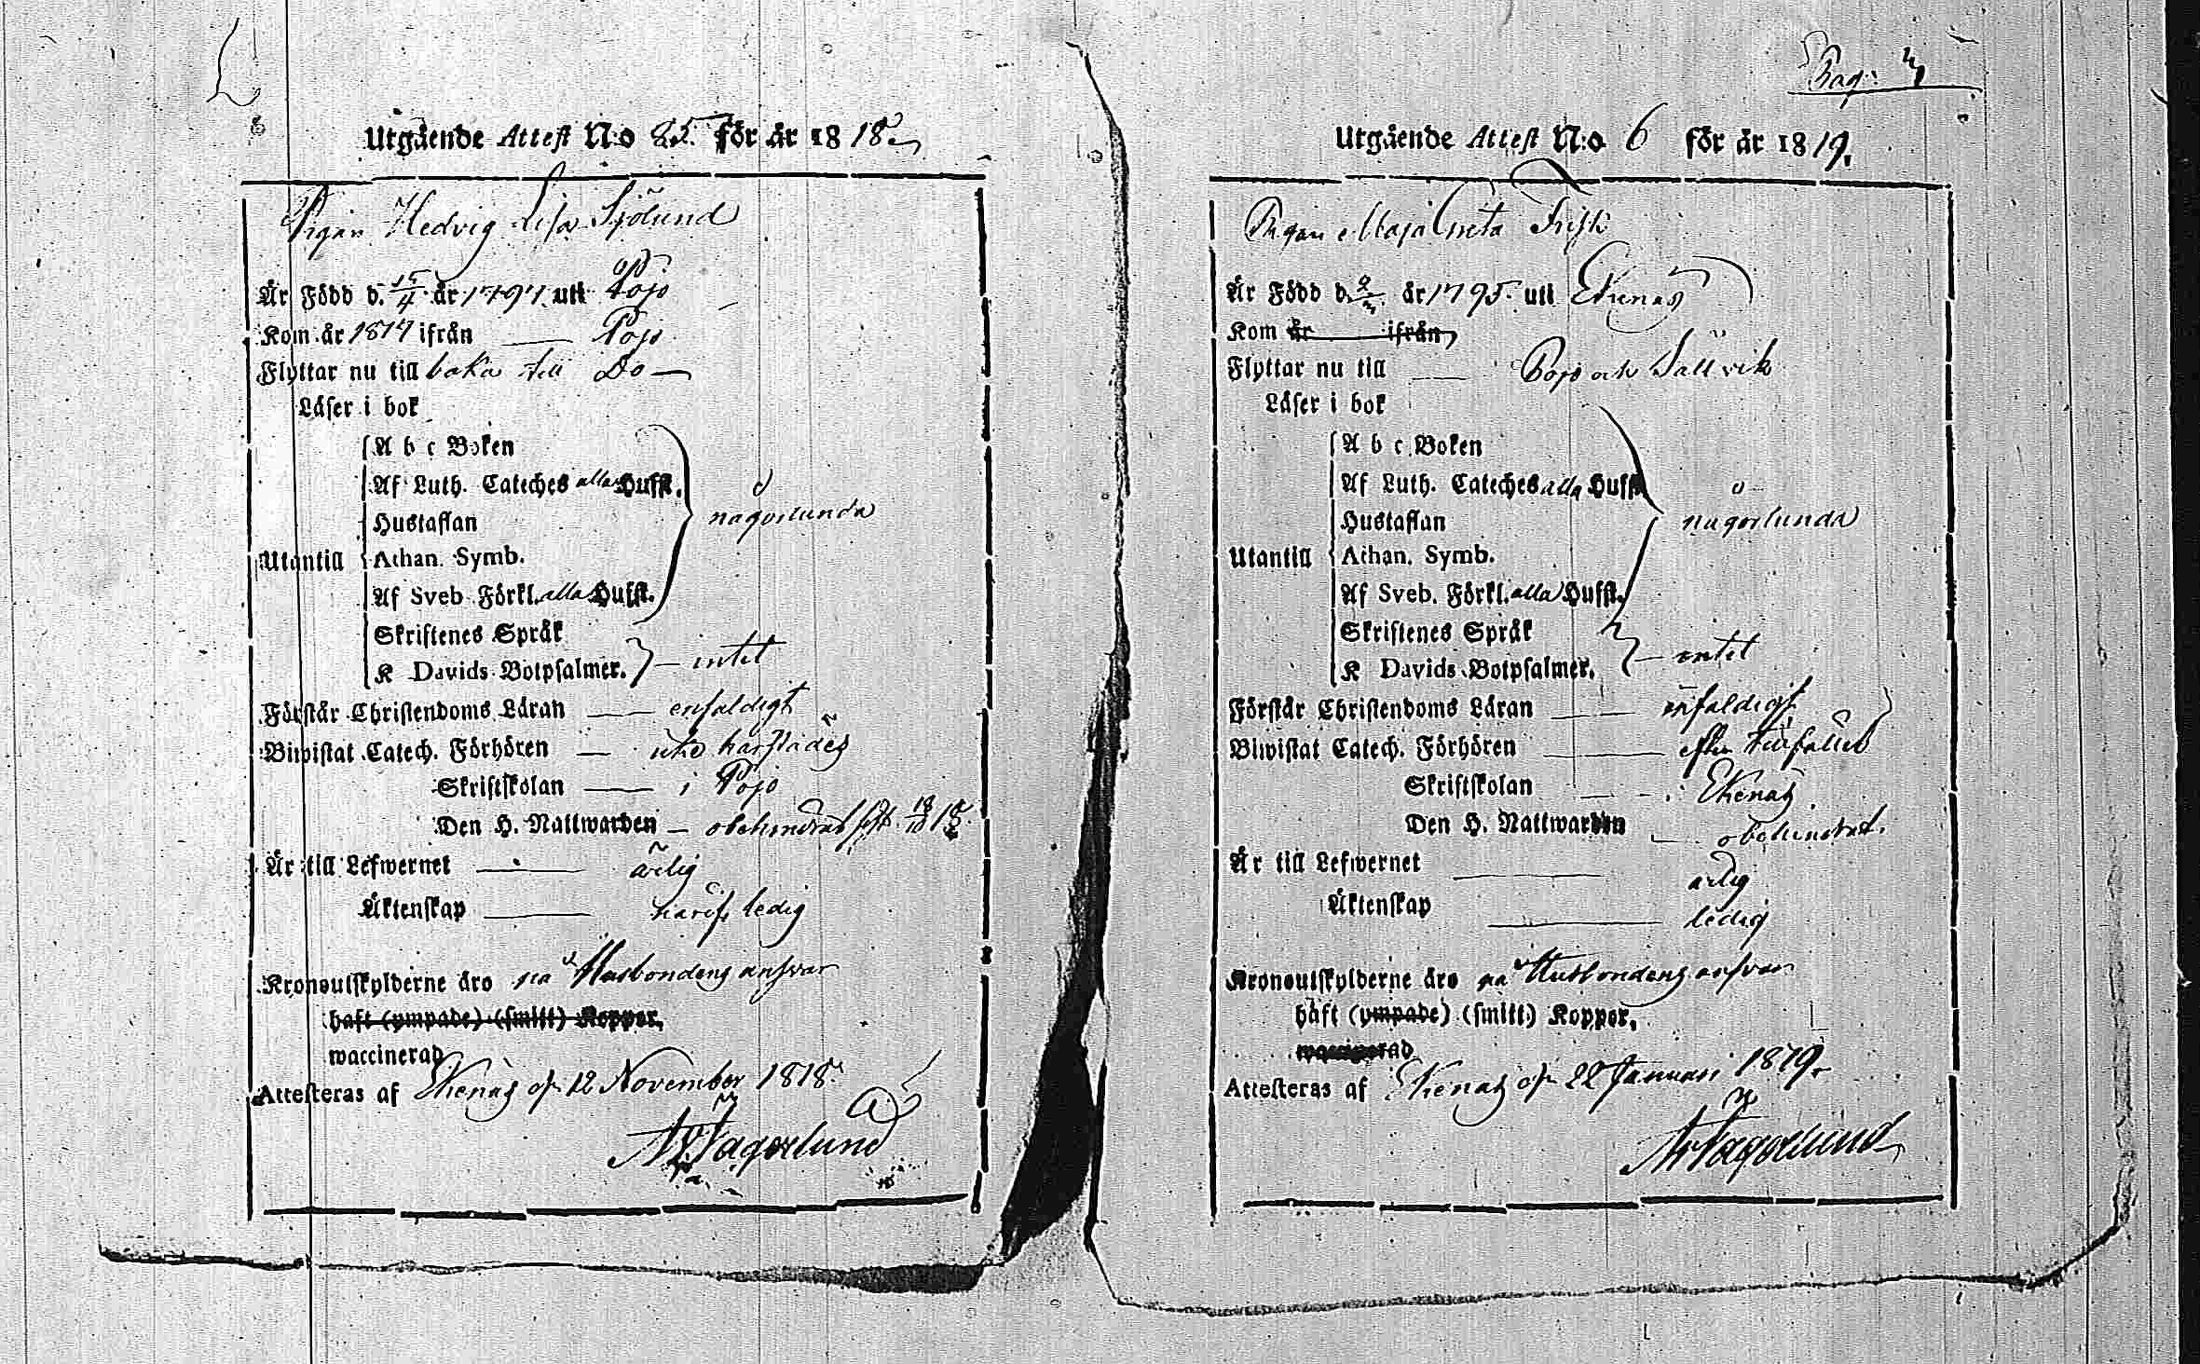 Utgående Attest N:o 85. för år 1818.
Pigan Hedvig Lisa Sjölund
Är Född d. 15/4 år 1797 uti Pojo
Kom år 1817 ifrån Pojo
Flyttar nu till baka till Do
Läser i bok
Utantill
A b c Boken
Af Luth. Cateches alla Hufst.
Hustaflan
Athan. Symb.
Af Sveb. Förkl. alla Hufst.
någorlunda
Skriftenes Språk
K Davids Botpsalmer.
intet
Förstår Christendoms Läran enfaldigt
Biwistat Catech. Förhören icke härstädes
Skriftskolan i Pojo
Den H. Nattwarden obehindrad sist 18/10 18.
Är till Lefwernet ärlig
Äktenskap härifr. ledig
Kronoutskylderne äro på Husbondens answar
haft (ympade) (smitt) Koppor,
waccinerad
Attesteras af Ekenäs of. 12 November 1818.
Fagerlund
Pag:
Utgående Attest N:o 6 för år 1819.
Pigan Maja Greta Frisk
Är Född d. år 1795. uti Ekenäs
Kom år ifrån
Flyttar nu till Pojo och Sällvik
Läser i bok
Utantill
A b c Boken
Af Luth. Cateches alla Hufst.
Hustaflan
Athan. Symb.
Af Sveb. Förkl. alla Hufst.
någorlunda
Skriftenes Språk
K Davids Botpsalmer.
intet
Förstår Christendoms Läran enfaldigt
Biwistat Catech. Förhören efter tillfälle
Skriftskolan i Ekenäs
Den H. Nattwarden obehindrat.
Är till Lefwernet ärlig
Äktenskap ledig
Kronoutskylderne äro på Husbondens answar
haft (ympade) (smitt) Koppor,
waccinerad
Attesteras af Ekenäs of. 22 Januari 1819.
Fagerlund